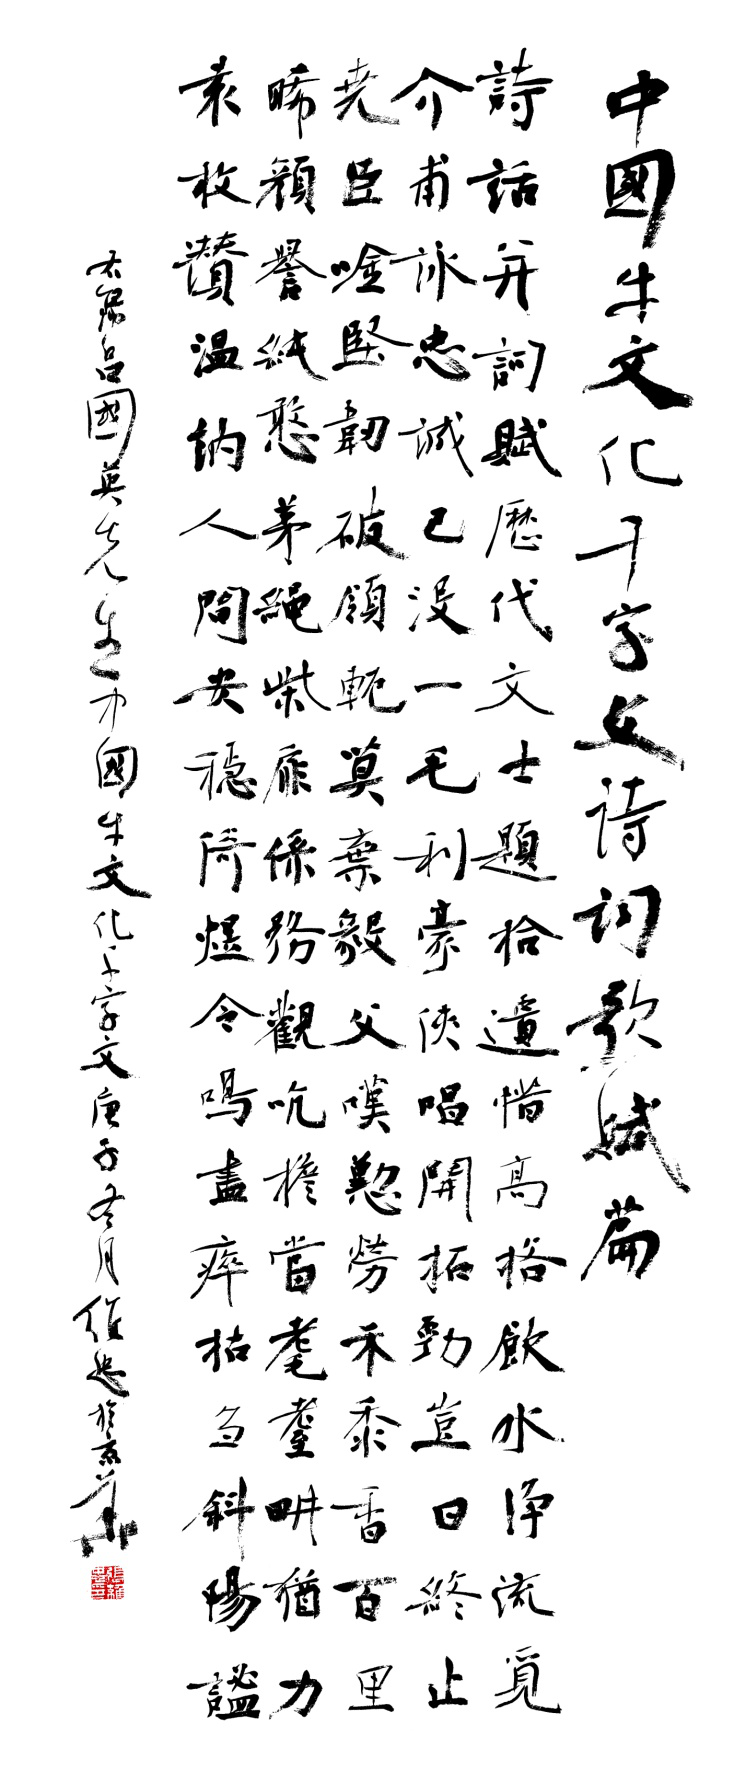 中國牛文化千字文詩詞歌賦篇
詩話并詞賦歷代文士題拾遺惜高格飲水淨流覓
介甫詠忠誠已沒一毛利豪俠唱開拓勁豈日終止
尭臣唫堅韌破領軛莫棄毅父嘆懃勞禾黍香百里
晞顏譽純憨茅繩柴扉係務觀吭檐當耄耋畊猶力
袁枚讚温訥人間安穩倚煜令鳴盡瘁枯芻斜陽謐
右錄呂國英先生中國牛文化千字文庚子冬月維忠於京華